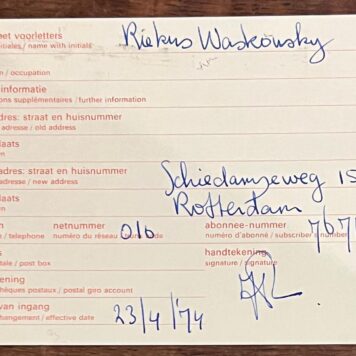 et voorletters Riekus Waskowsky
itiales / name with initials
n / occupation
informatie
ons supplémentaires / further information
adres: straat en huisnummer
adresse / old address
laats
n
adres: straat en huisnummer Schiedamseweg 15
adresse / new address
laats Rotterdam
n netnummer 010 abonnee-nummer 7671
e / telephone numéro du réseau numéro d'abonné / subscriber's number
s handtekening
tale / post box signature / signature
ening
hèques postaux / postal giro account
van ingang 23/4/'74
hangement / effective date